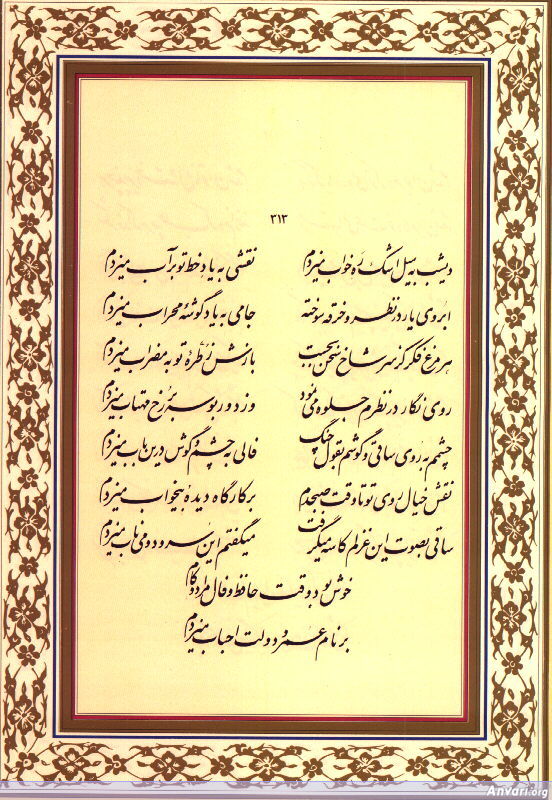 ۳۱۳
دیشب به سیل اشک ره خواب میزدم نقشی به یاد خط تو بر آب میزدم
ابروی یار در نظر و خرقه سوخته جامی به یاد گوشهٔ محراب میزدم
هر مرغ فکر کز سر شاخ سخن بجست بازش ز طرهٔ تو به مضراب میزدم
روی نگار در نظرم جلوه می نمود وز دور بوسه بر رخ مهتاب میزدم
چشم به روی ساقی و گوشم بقول چنگ فالی به چشم و گوش درین باب میزدم
نقش خیال روی تو تا وقت صبحدم بر کارگاه دیده بیخواب میزدم
ساقی بصوت این غزلم کاسه میگرفت میگفتم این سرود و می ناب میزدم
خوش بود وقت حافظ و فال مراد و کام
بر نام عمر و دولت احباب میزدم
Anvari.org